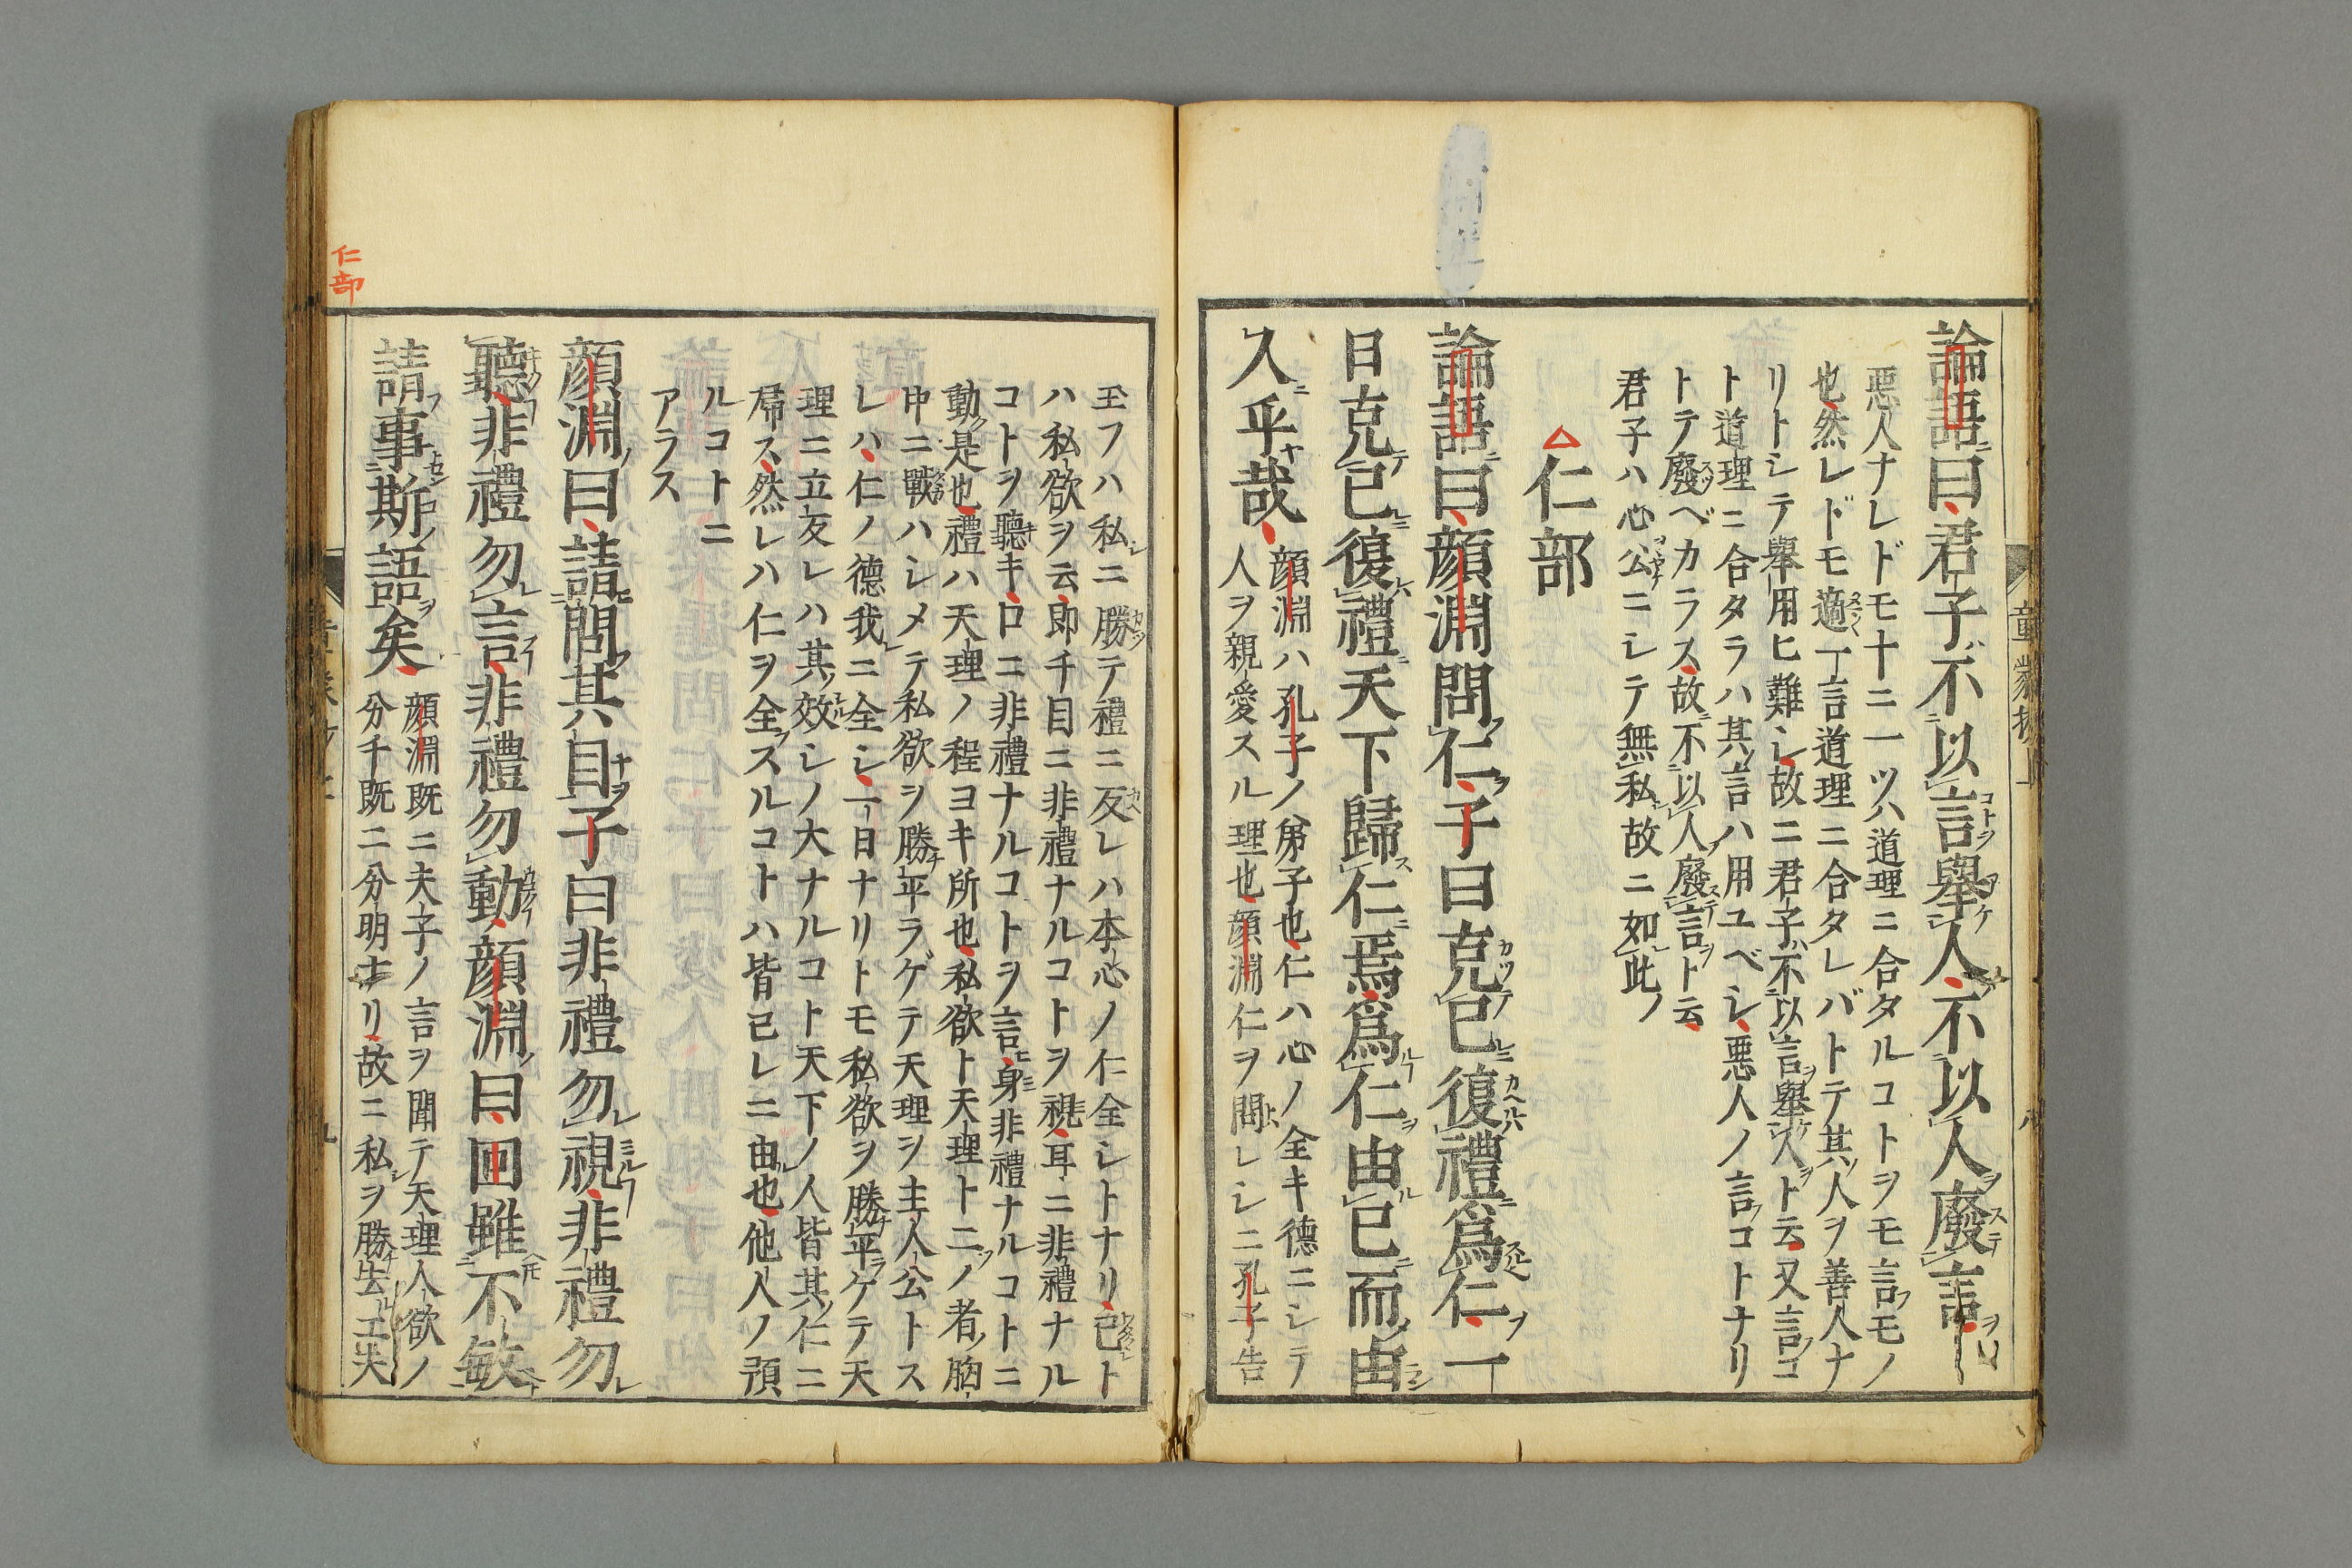 論語曰君子不以言舉人不以人廢言
惡人ナレドモ十ニ一ツハ道理ニ合タルコトヲモ言フモノ
也然レドモ適一言道理ニ合タレバトテ其人ヲ善人ナ
リトシテ舉用ヒ難シ故ニ君子不以言舉人ト云又言フコ
ト道理ニ合タラハ其言ハ用ユベシ惡人ノ言フコトナリ
トテ廢ベカラス故不以人廢言ト云
君子ハ心公ニシテ無私故ニ如此ノ
仁部
論語曰顔淵問仁子曰克己復禮爲仁一
日克己復禮天下歸仁焉爲仁由己而由
人乎哉
顔淵ハ孔子ノ弟子也仁ハ心ノ全キ德ニシテ
人ヲ親愛スル理也顔淵仁ヲ問レシニ孔子告
玉フハ私ニ勝テ禮ニ反レハ本心ノ仁全シトナリ己ト
ハ私欲ヲ云即千目ニ非禮ナルコトヲ視耳ニ非禮ナル
コトヲ聽キ口ニ非禮ナルコトヲ言身非禮ナルコトニ
動是也禮ハ天理ノ程ヨキ所也私欲ト天理ト二ノ者胸
中ニ戰ハシメテ私欲ヲ勝平ラゲテ天理ヲ主人公トス
レハ仁ノ德我ニ全シ一日ナリトモ私欲ヲ勝平ラケテ天
理ニ立反レハ其效シノ大ナルコト天下ノ人皆其仁ニ
歸ス然レハ仁ヲ全スルコトハ皆己レニ由也他人ノ預
ルコトニ
アラス
顔淵曰請問其目子曰非禮勿視非禮勿
聽非禮勿言非禮勿動顔淵曰回雖不敏
請事斯語矣
顔淵既ニ夫子ノ言ヲ聞テ天理人欲ノ
分千既ニ分明ナリ故ニ私ヲ勝去ル工夫
仁部